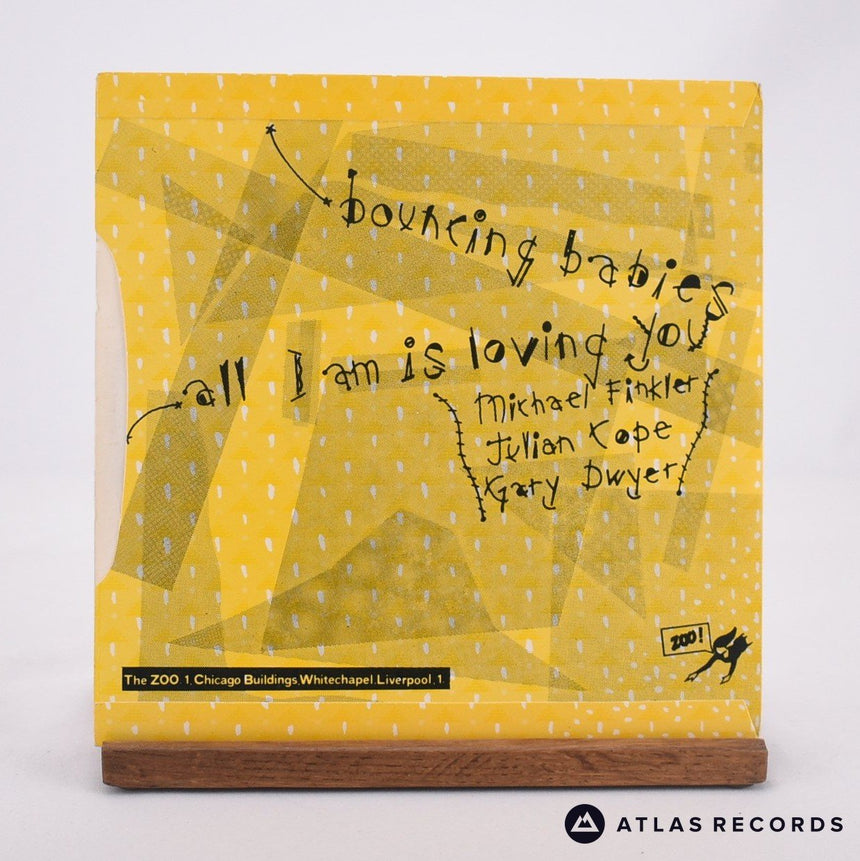 bouncing babies
all I am is loving you
Michael Finkler
Julian Cope
Gary Dwyer
ZOO!
The ZOO 1.Chicago Buildings.Whitechapel.Liverpool.1.
ATLAS RECORDS